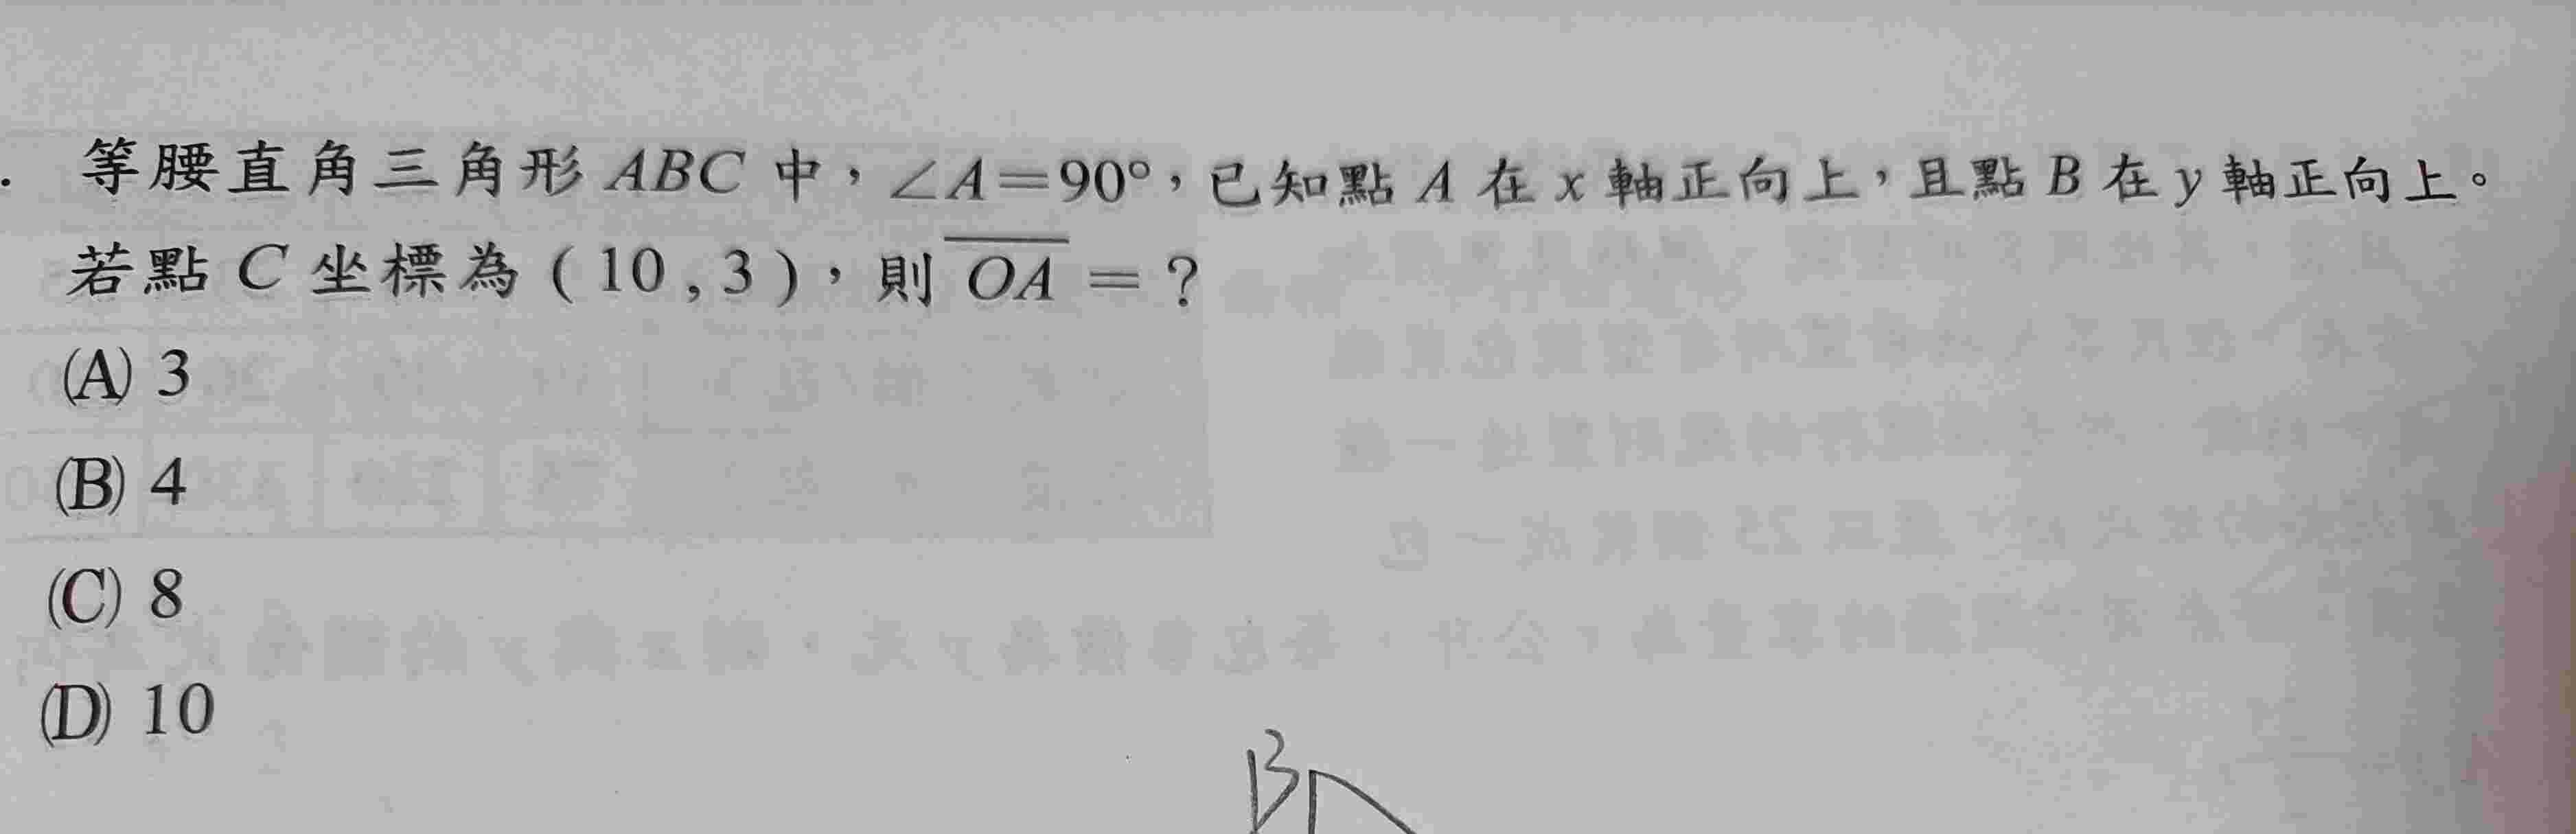 . 等腰直角三角形 ABC 中，∠A=90°，已知點 A 在 x 軸正向上，且點 B 在 y 軸正向上。
若點 C 坐標為 ( 10 , 3 )，則 OA = ?
(A) 3
(B) 4
(C) 8
(D) 10
B